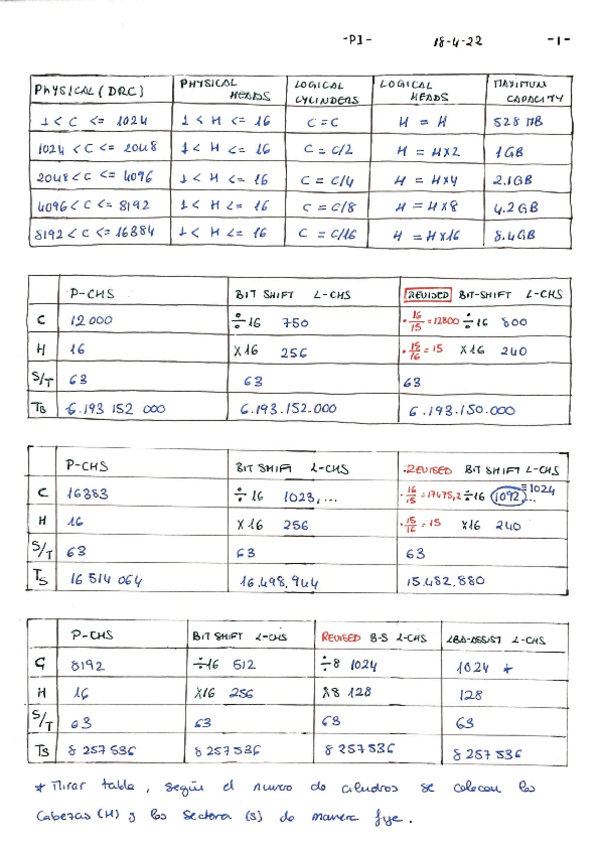 -PI- 18-4-22 -1-
PHYSICAL (DRC) PHYSICAL HEADS LOGICAL CYLINDERS LOGICAL HEADS MAXIMUM CAPACITY
1 < C <= 1024 1 < H <= 16 C = C H = H 528 MB
1024 < C <= 2048 1 < H <= 16 C = C/2 H = H×2 1GB
2048 < C <= 4096 1 < H <= 16 C = C/4 H = H×4 2.1GB
4096 < C <= 8192 1 < H <= 16 C = C/8 H = H×8 4.2GB
8192 < C <= 16384 1 < H <= 16 C = C/16 H = H×16 8.4GB
P-CHS BIT SHIFT L-CHS REVISED BIT-SHIFT L-CHS
C 12000 ÷16 750 ·16/15 = 12800 ÷16 800
H 16 ×16 256 ·15/16 = 15 ×16 240
S/T 63 63 63
TS 6.193 152 000 6.193.152.000 6.193.150.000
P-CHS BIT SHIFT L-CHS REVISED BIT SHIFT L-CHS
C 16383 ÷16 1023,... ·16/15 = 17475,2 ÷16 1092,.. = 1024
H 16 ×16 256 ·15/16 = 15 ×16 240
S/T 63 63 63
TS 16 514 064 16.498.944 15.482.880
P-CHS BIT SHIFT L-CHS REVISED B-S L-CHS LBA-ASSIST L-CHS
C 8192 ÷16 512 ÷8 1024 1024 *
H 16 ×16 256 ×8 128 128
S/T 63 63 63 63
TS 8 257 536 8 257 536 8 257 536 8 257 536
* Mirar tabla, según el numero de cilindros se colocan los
Cabezas (H) y los sectores (S) de manera fije.